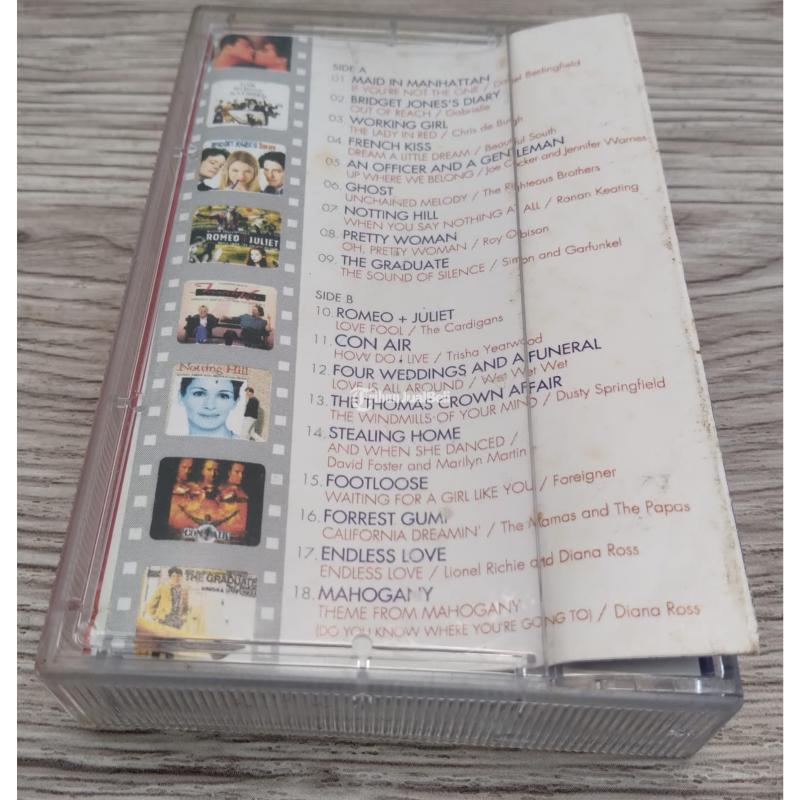 SIDE A
01. MAID IN MANHATTAN
IF YOU'RE NOT THE ONE / Daniel Bedingfield
02. BRIDGET JONES'S DIARY
OUT OF REACH / Gabrielle
03. WORKING GIRL
THE LADY IN RED / Chris de Burgh
04. FRENCH KISS
DREAM A LITTLE DREAM / Beautiful South
05. AN OFFICER AND A GENTLEMAN
UP WHERE WE BELONG / Joe Cocker and Jennifer Warnes
06. GHOST
UNCHAINED MELODY / The Righteous Brothers
07. NOTTING HILL
WHEN YOU SAY NOTHING AT ALL / Ronan Keating
08. PRETTY WOMAN
OH, PRETTY WOMAN / Roy Orbison
09. THE GRADUATE
THE SOUND OF SILENCE / Simon and Garfunkel
SIDE B
10. ROMEO + JULIET
LOVE FOOL / The Cardigans
11. CON AIR
HOW DO I LIVE / Trisha Yearwood
12. FOUR WEDDINGS AND A FUNERAL
LOVE IS ALL AROUND / Wet Wet Wet
13. THE THOMAS CROWN AFFAIR
THE WINDMILLS OF YOUR MIND / Dusty Springfield
14. STEALING HOME
AND WHEN SHE DANCED /
David Foster and Marilyn Martin
15. FOOTLOOSE
WAITING FOR A GIRL LIKE YOU / Foreigner
16. FORREST GUMP
CALIFORNIA DREAMIN' / The Mamas and The Papas
17. ENDLESS LOVE
ENDLESS LOVE / Lionel Richie and Diana Ross
18. MAHOGANY
THEME FROM MAHOGANY
(DO YOU KNOW WHERE YOU'RE GOING TO) / Diana Ross
ROMEO JULIET
Notting Hill
CON AIR
THE GRADUATE